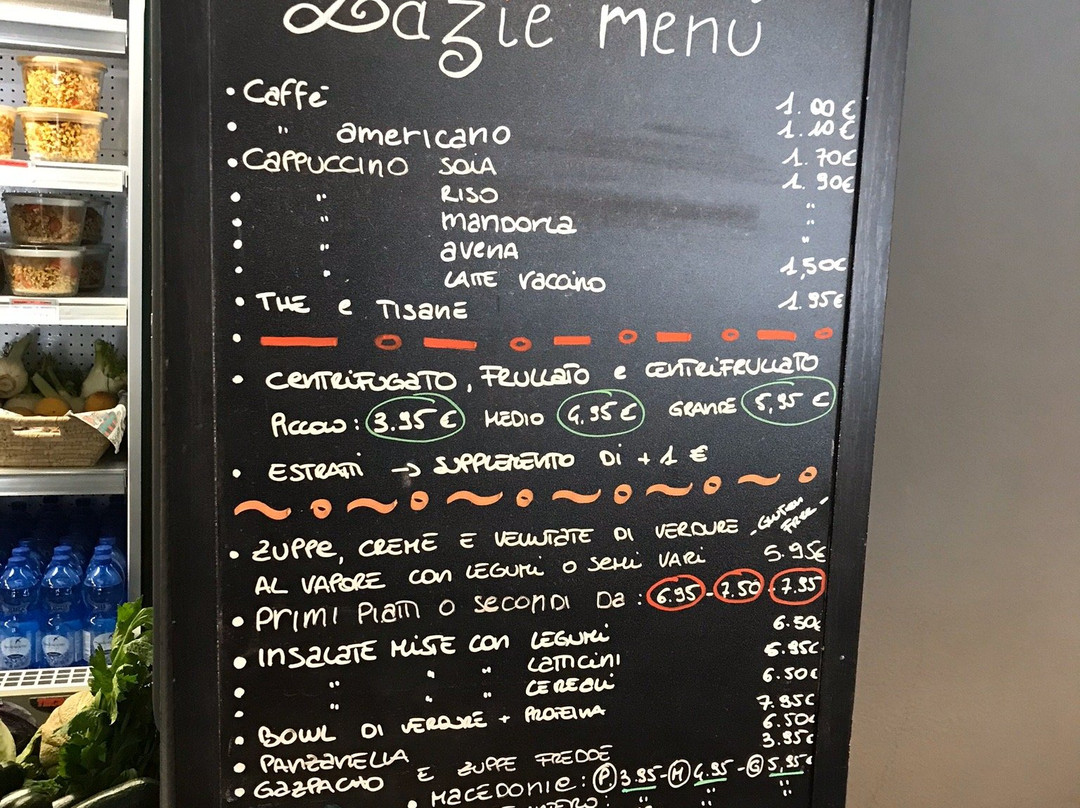 Zazie menù
• Caffè 1.00€
• " americano 1.10€
• CAPPUCCINO SOIA 1.70€
• " RISO 1.90€
• " MANDORLA "
• " AVENA "
• " LATTE VACCINO 1,50€
• THE e TISANE 1.95€
• CENTRIFUGATO, FRULLATO e CENTRIFRULLATO
PICCOLO: 3.95€ MEDIO 4.95€ GRANDE 5,95€
• ESTRATTI → SUPPLEMENTO DI +1€
• ZUPPE, CREME E VELLUTATE DI VERDURE - GLUTEN FREE -
AL VAPORE CON LEGUMI O SEMI VARI 5.95€
• PRIMI PIATTI O SECONDI DA: 6.95 - 7.50 - 7.95
• INSALATE MISTE CON LEGUMI 6.50€
• " " " LATTICINI 6.95€
• " " " CEREALI 6.50€
• BOWL DI VERDURE + PROTEINA 7.95€
• PANZANELLA 6.50€
• GAZPACHO E ZUPPE FREDDE 3.95€
• MACEDONIE: (P.) 3.95 - (M) 4.95 - (G) 5,95€
" " "